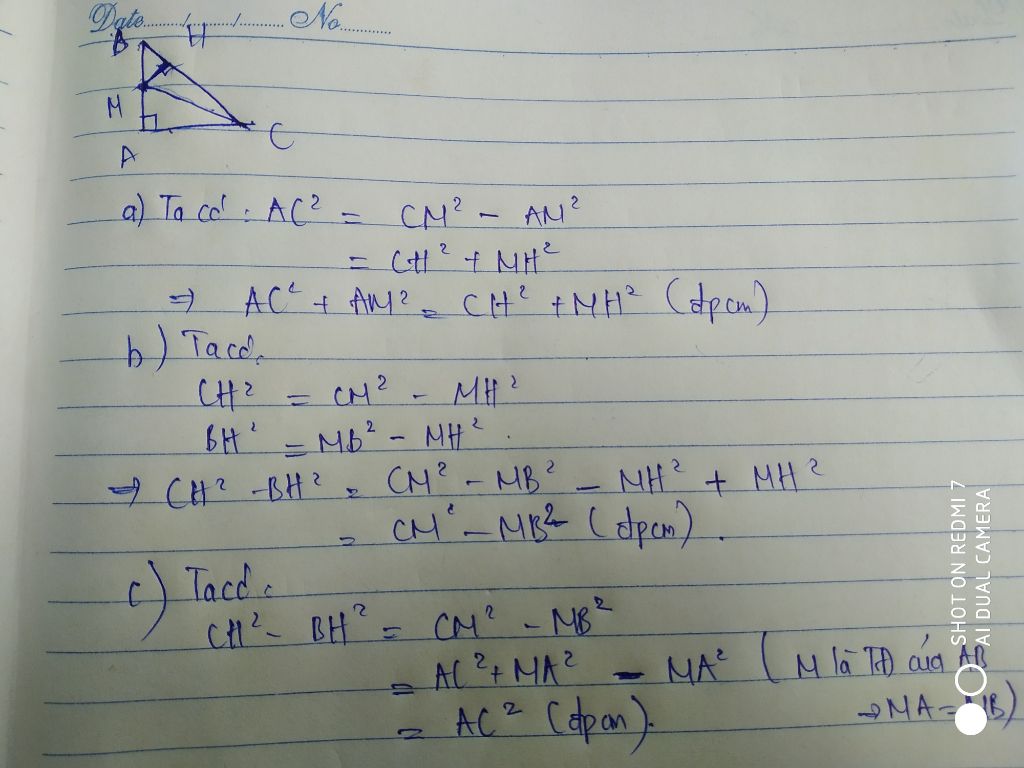 Date....../....../...... No............
B H
M
A C
a) Ta có : AC² = CM² - AM²
= CH² + MH²
=> AC² + AM² = CH² + MH² (đpcm)
b) Ta có:
CH² = CM² - MH²
BH² = MB² - MH².
=> CH² - BH² = CM² - MB² - MH² + MH²
= CM² - MB² (đpcm).
c) Ta có:
CH² - BH² = CM² - MB²
= AC² + MA² - MA² ( M là TĐ của AB
= AC² (đpcm). → MA = MB)
SHOT ON REDMI 7
AI DUAL CAMERA